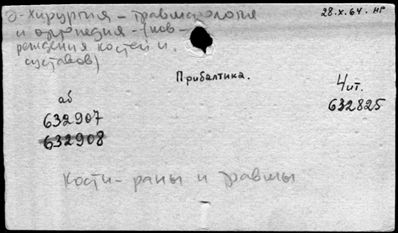 Э-хирургия - травматология
28.X.64. НГ
и ортопедия - (пов-
реждения костей и
суставов)
Прибалтика.
Чит.
аб
632825
632907
632908
Кости - раны и травмы